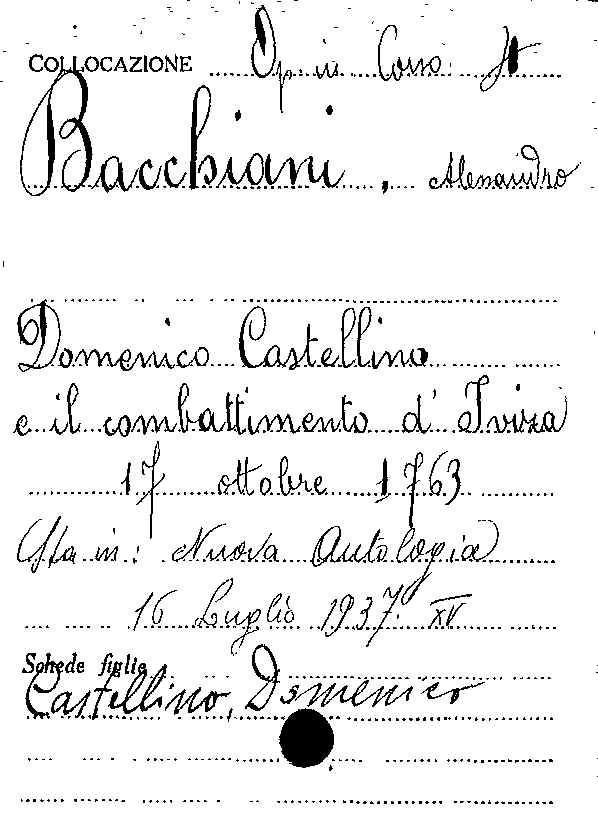 COLLOCAZIONE Op. in Corso.
Bacchiani, Alessandro
Domenico Castellino
e il combattimento d'Iviza
17 ottobre 1763
Sta in: Nuova Antologia
16 Luglio 1937. XV
Schede figlie
Castellino, Domenico